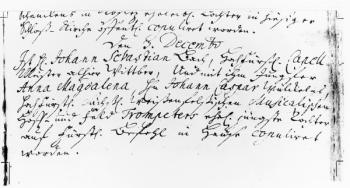 Schloß Kirche öffentl. copuliret worden.
Den 3. Decembr.
Johann Sebastian Bach, Hochfürstl. Capell
Meister alhier Wittber, Und mit ihm Jungfer
Anna Magdalena, Johann Caspar Wülckens
Hochfürstl. Sächß. Weißenfelsischen Musicalischen
Hoff und Feld Trompeters ehel. jüngste Tochter
auf Fürstl. Befehl in Hause copuliret
worden.